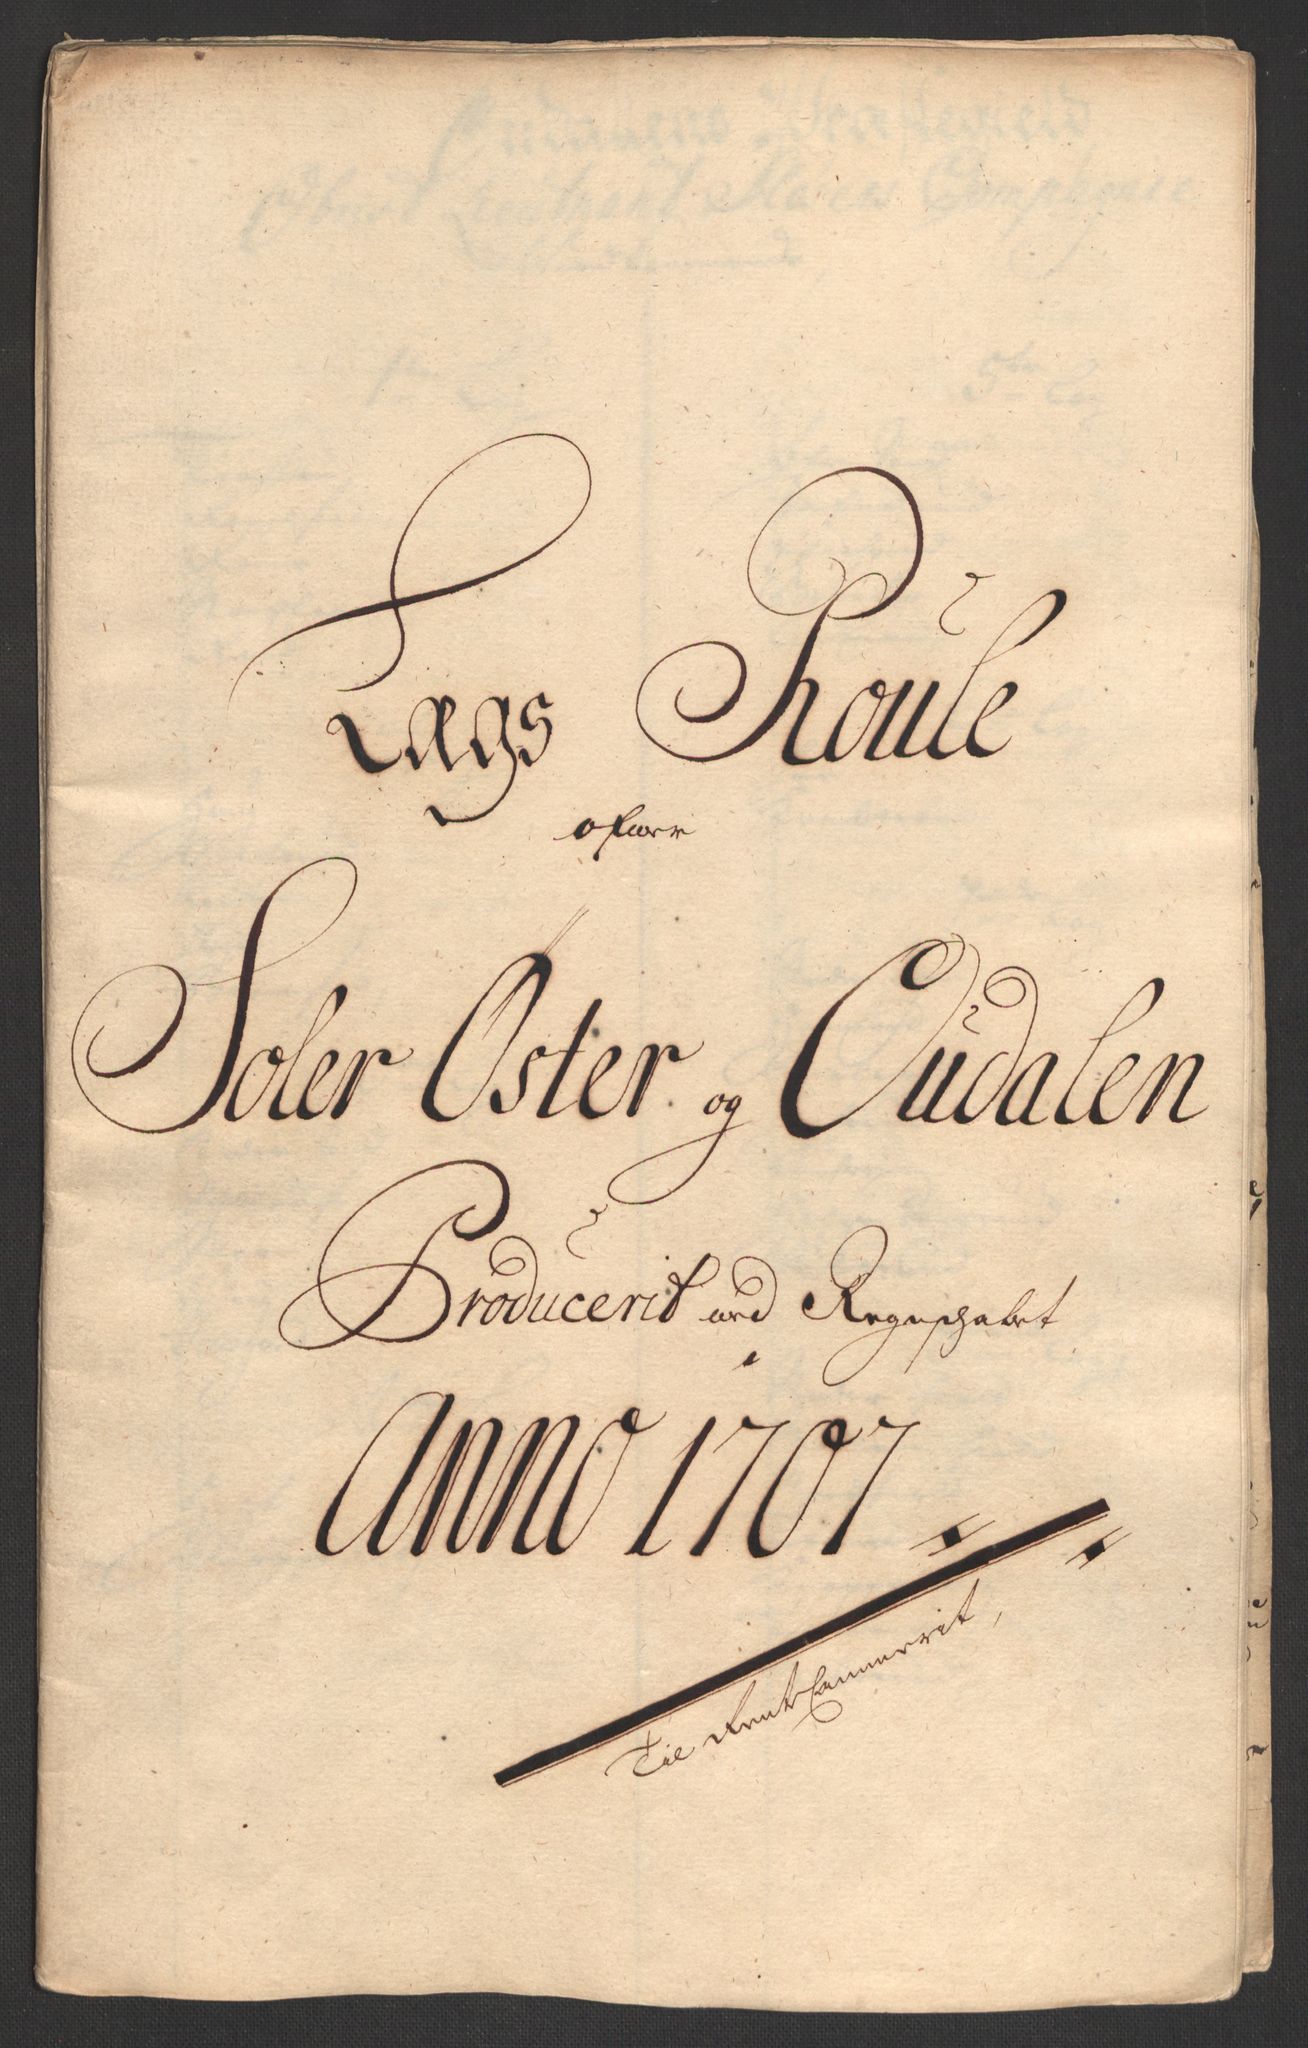 Lægs Roule
ofwer
Soler Øster og Oudalen
Producerit wed Regnschabet
Anno 1707
Til RentCammerit,